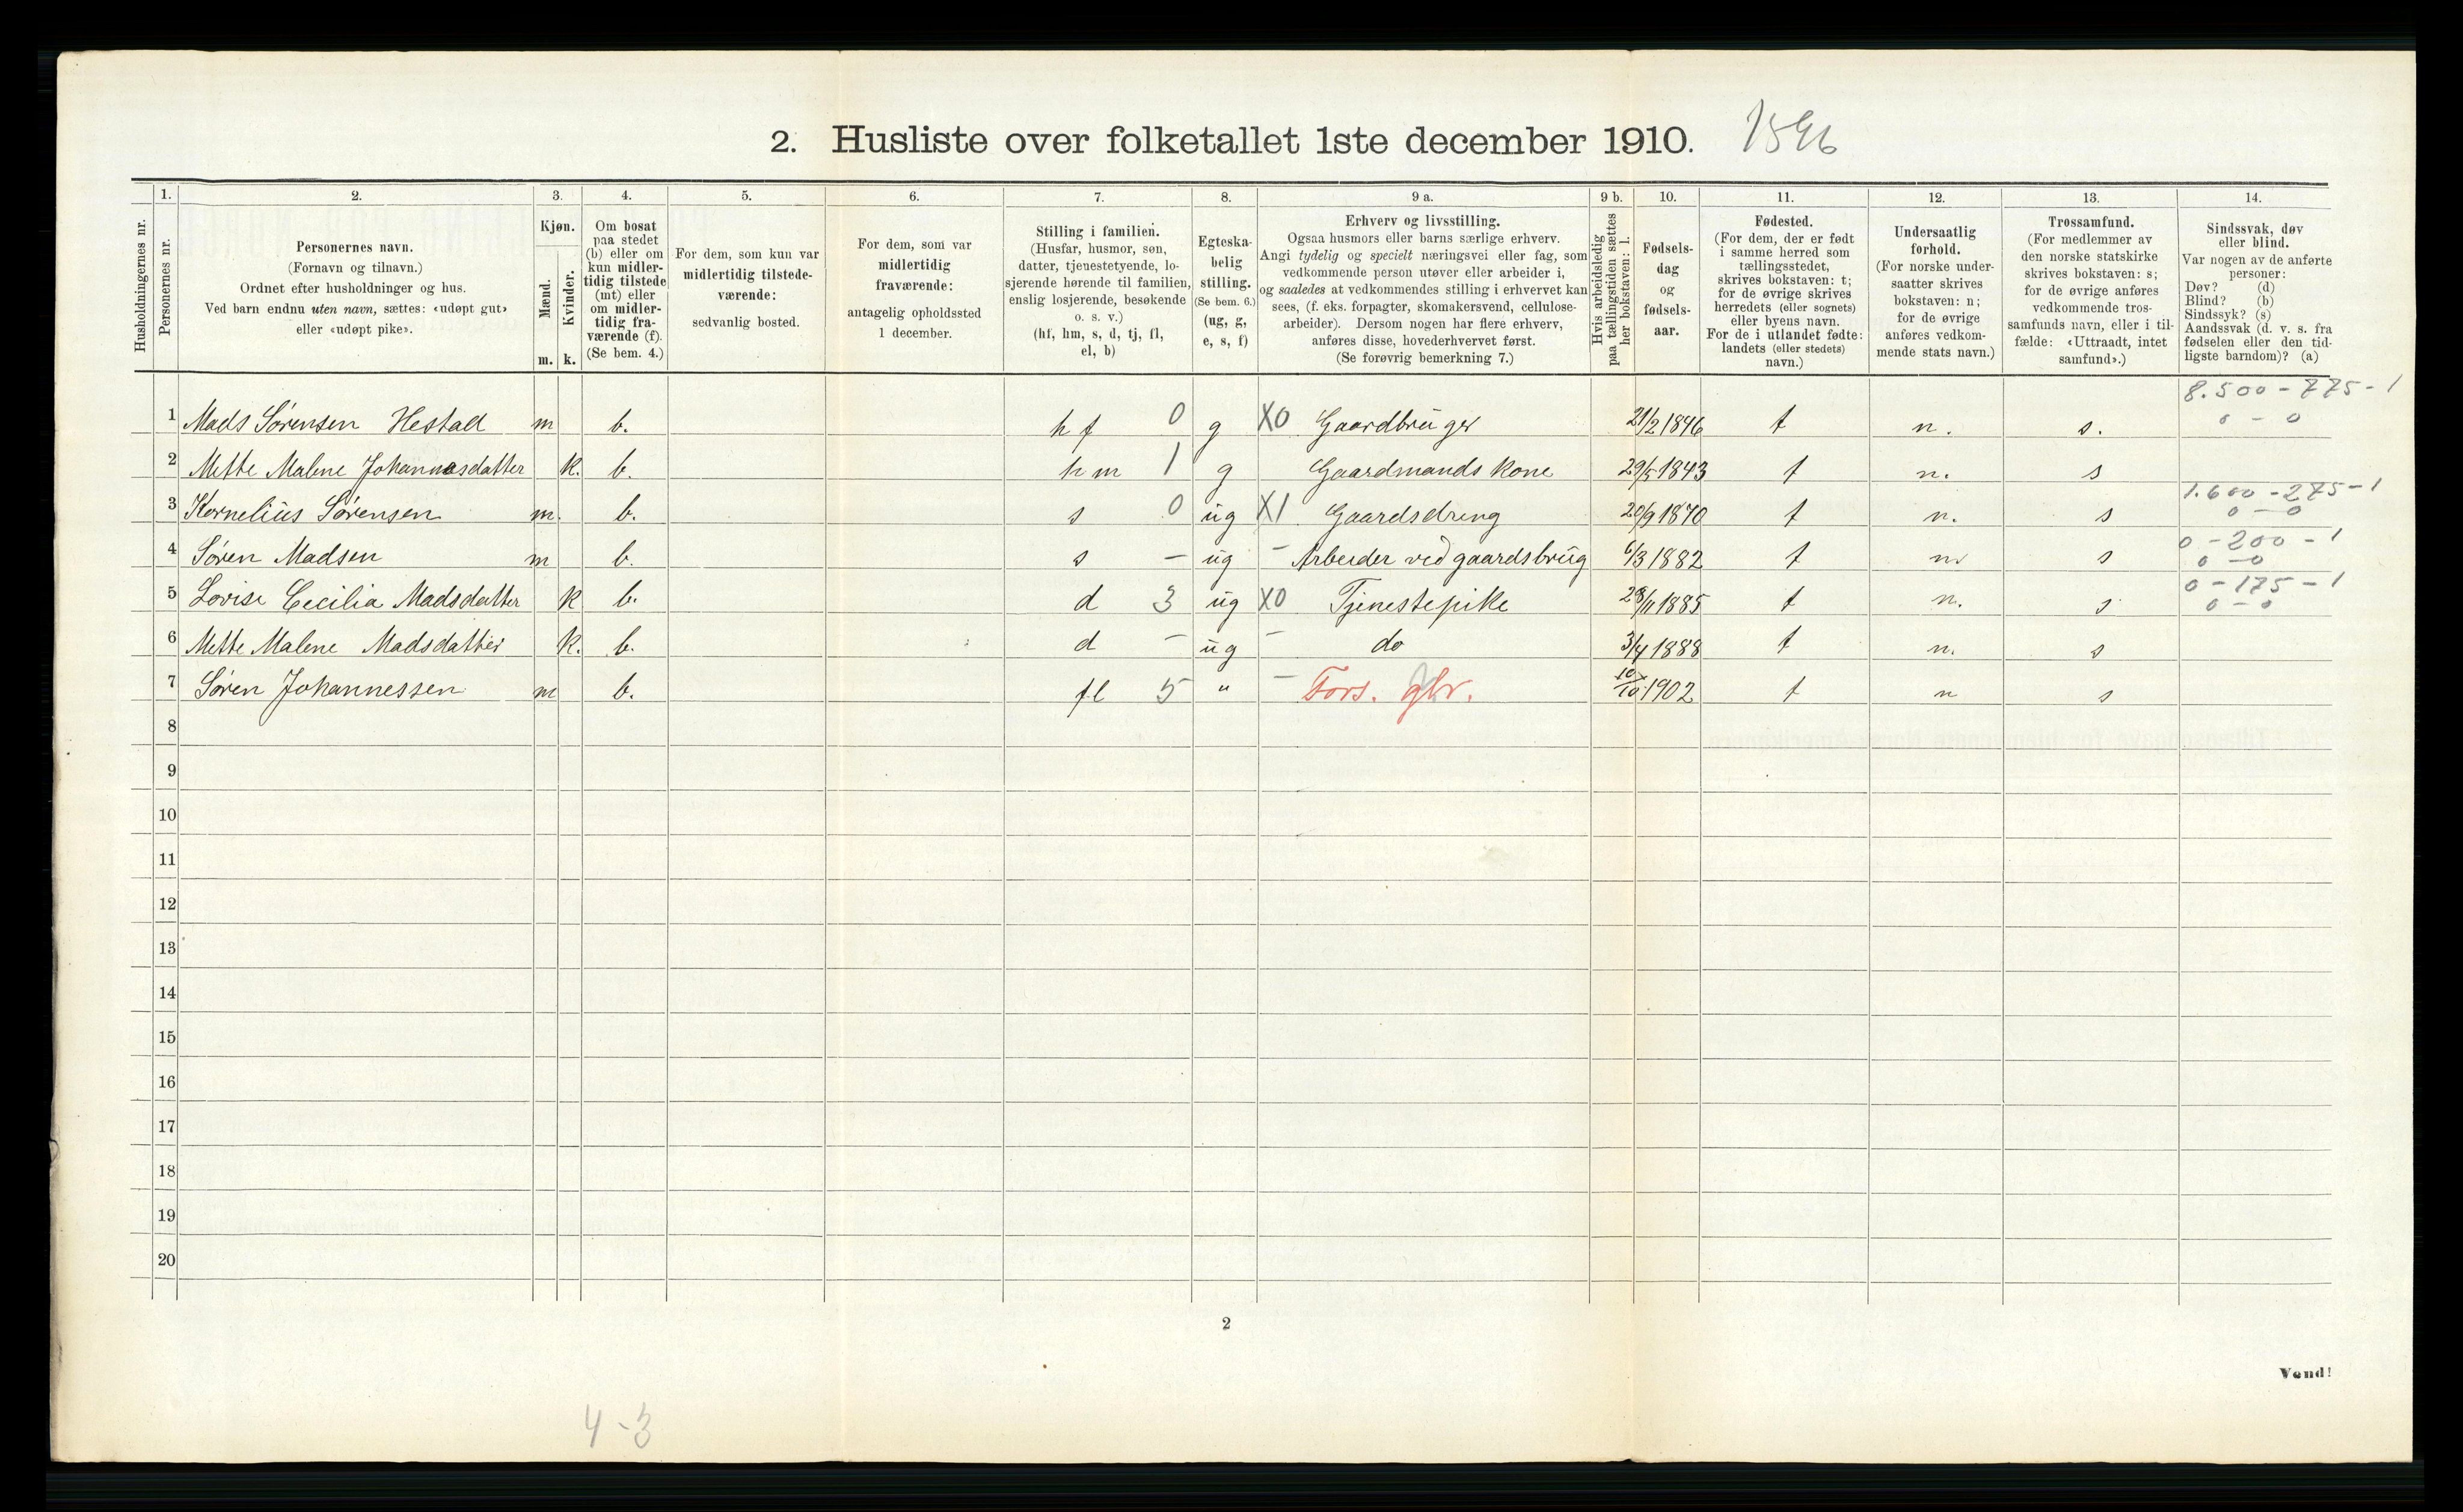 2. Husliste over folketallet 1ste december 1910. 1596
Husholdningernes nr.
1. Personernes nr.
2. Personernes navn.
(Fornavn og tilnavn.)
Ordnet efter husholdninger og hus.
Ved barn endnu uten navn, sættes: «udøpt gut»
eller «udøpt pike».
3. Kjøn.
Mænd. m.
Kvinder. k.
4. Om bosat
paa stedet
(b) eller om
kun midler-
tidig tilstede
(mt) eller
om midler-
tidig fra-
værende (f).
(Se bem. 4.)
5. For dem, som kun var
midlertidig tilstede-
værende:
sedvanlig bosted.
6. For dem, som var
midlertidig
fraværende:
antagelig opholdssted
1 december.
7. Stilling i familien.
(Husfar, husmor, søn,
datter, tjenestetyende, lo-
sjerende hørende til familien,
enslig losjerende, besøkende
o. s. v.)
(hf, hm, s, d, tj, fl,
el, b)
8. Egteska-
belig
stilling.
(Se bem. 6.)
(ug, g,
e, s, f)
9 a. Erhverv og livsstilling.
Ogsaa husmors eller barns særlige erhverv.
Angi tydelig og specielt næringsvei eller fag, som
vedkommende person utøver eller arbeider i,
og saaledes at vedkommendes stilling i erhvervet kan
sees, (f. eks. forpagter, skomakersvend, cellulose-
arbeider). Dersom nogen har flere erhverv,
anføres disse, hovederhvervet først.
(Se forøvrig bemerkning 7.)
9 b. Hvis arbeidsledig
paa tællingstiden sættes
her bokstaven: l.
10. Fødsels-
dag
og
fødsels-
aar.
11. Fødested.
(For dem, der er født
i samme herred som
tællingsstedet,
skrives bokstaven: t;
for de øvrige skrives
herredets (eller sognets)
eller byens navn.
For de i utlandet fødte:
landets (eller stedets)
navn.)
12. Undersaatlig
forhold.
(For norske under-
saatter skrives
bokstaven: n;
for de øvrige
anføres vedkom-
mende stats navn.)
13. Trossamfund.
(For medlemmer av
den norske statskirke
skrives bokstaven: s;
for de øvrige anføres
vedkommende tros-
samfunds navn, eller i til-
fælde: «Uttraadt, intet
samfund».)
14. Sindssvak, døv
eller blind.
Var nogen av de anførte
personer:
Døv? (d)
Blind? (b)
Sindssyk? (s)
Aandssvak (d. v. s. fra
fødselen eller den tid-
ligste barndom)? (a)
8.500 - 775 - 1
1 Mads Sørensen Hestad m b. hf 0 g X0 Gaardbruger 21/2 1846 t n. s. 0 - 0
2 Mette Malene Johannesdatter k. b. hm 1 g Gaardmands kone 29/5 1843 t n. s
1.600 - 275 - 1
3 Kornelius Sørensen m. b. s 0 ug X1 Gaardsdreng 20/9 1870 t n. s 0 - 0
0 - 200 - 1
4 Søren Madsen m b. s - ug - Arbeider ved gaardsbrug 6/3 1882 t n. s 0 - 0
0 - 175 - 1
5 Lovise Cecilia Madsdatter k b. d 3 ug X0 Tjenestepike 28/11 1885 t n. s 0 - 0
6 Mette Malene Madsdatter k. b. d - ug - do 3/4 1888 t n. s
7 Søren Johannessen m b. fl 5 " - Fors. gbr. 10/10 1902 t n s
8
9
10
11
12
13
14
15
16
17
18
19
20
2
Vend!
4 - 3